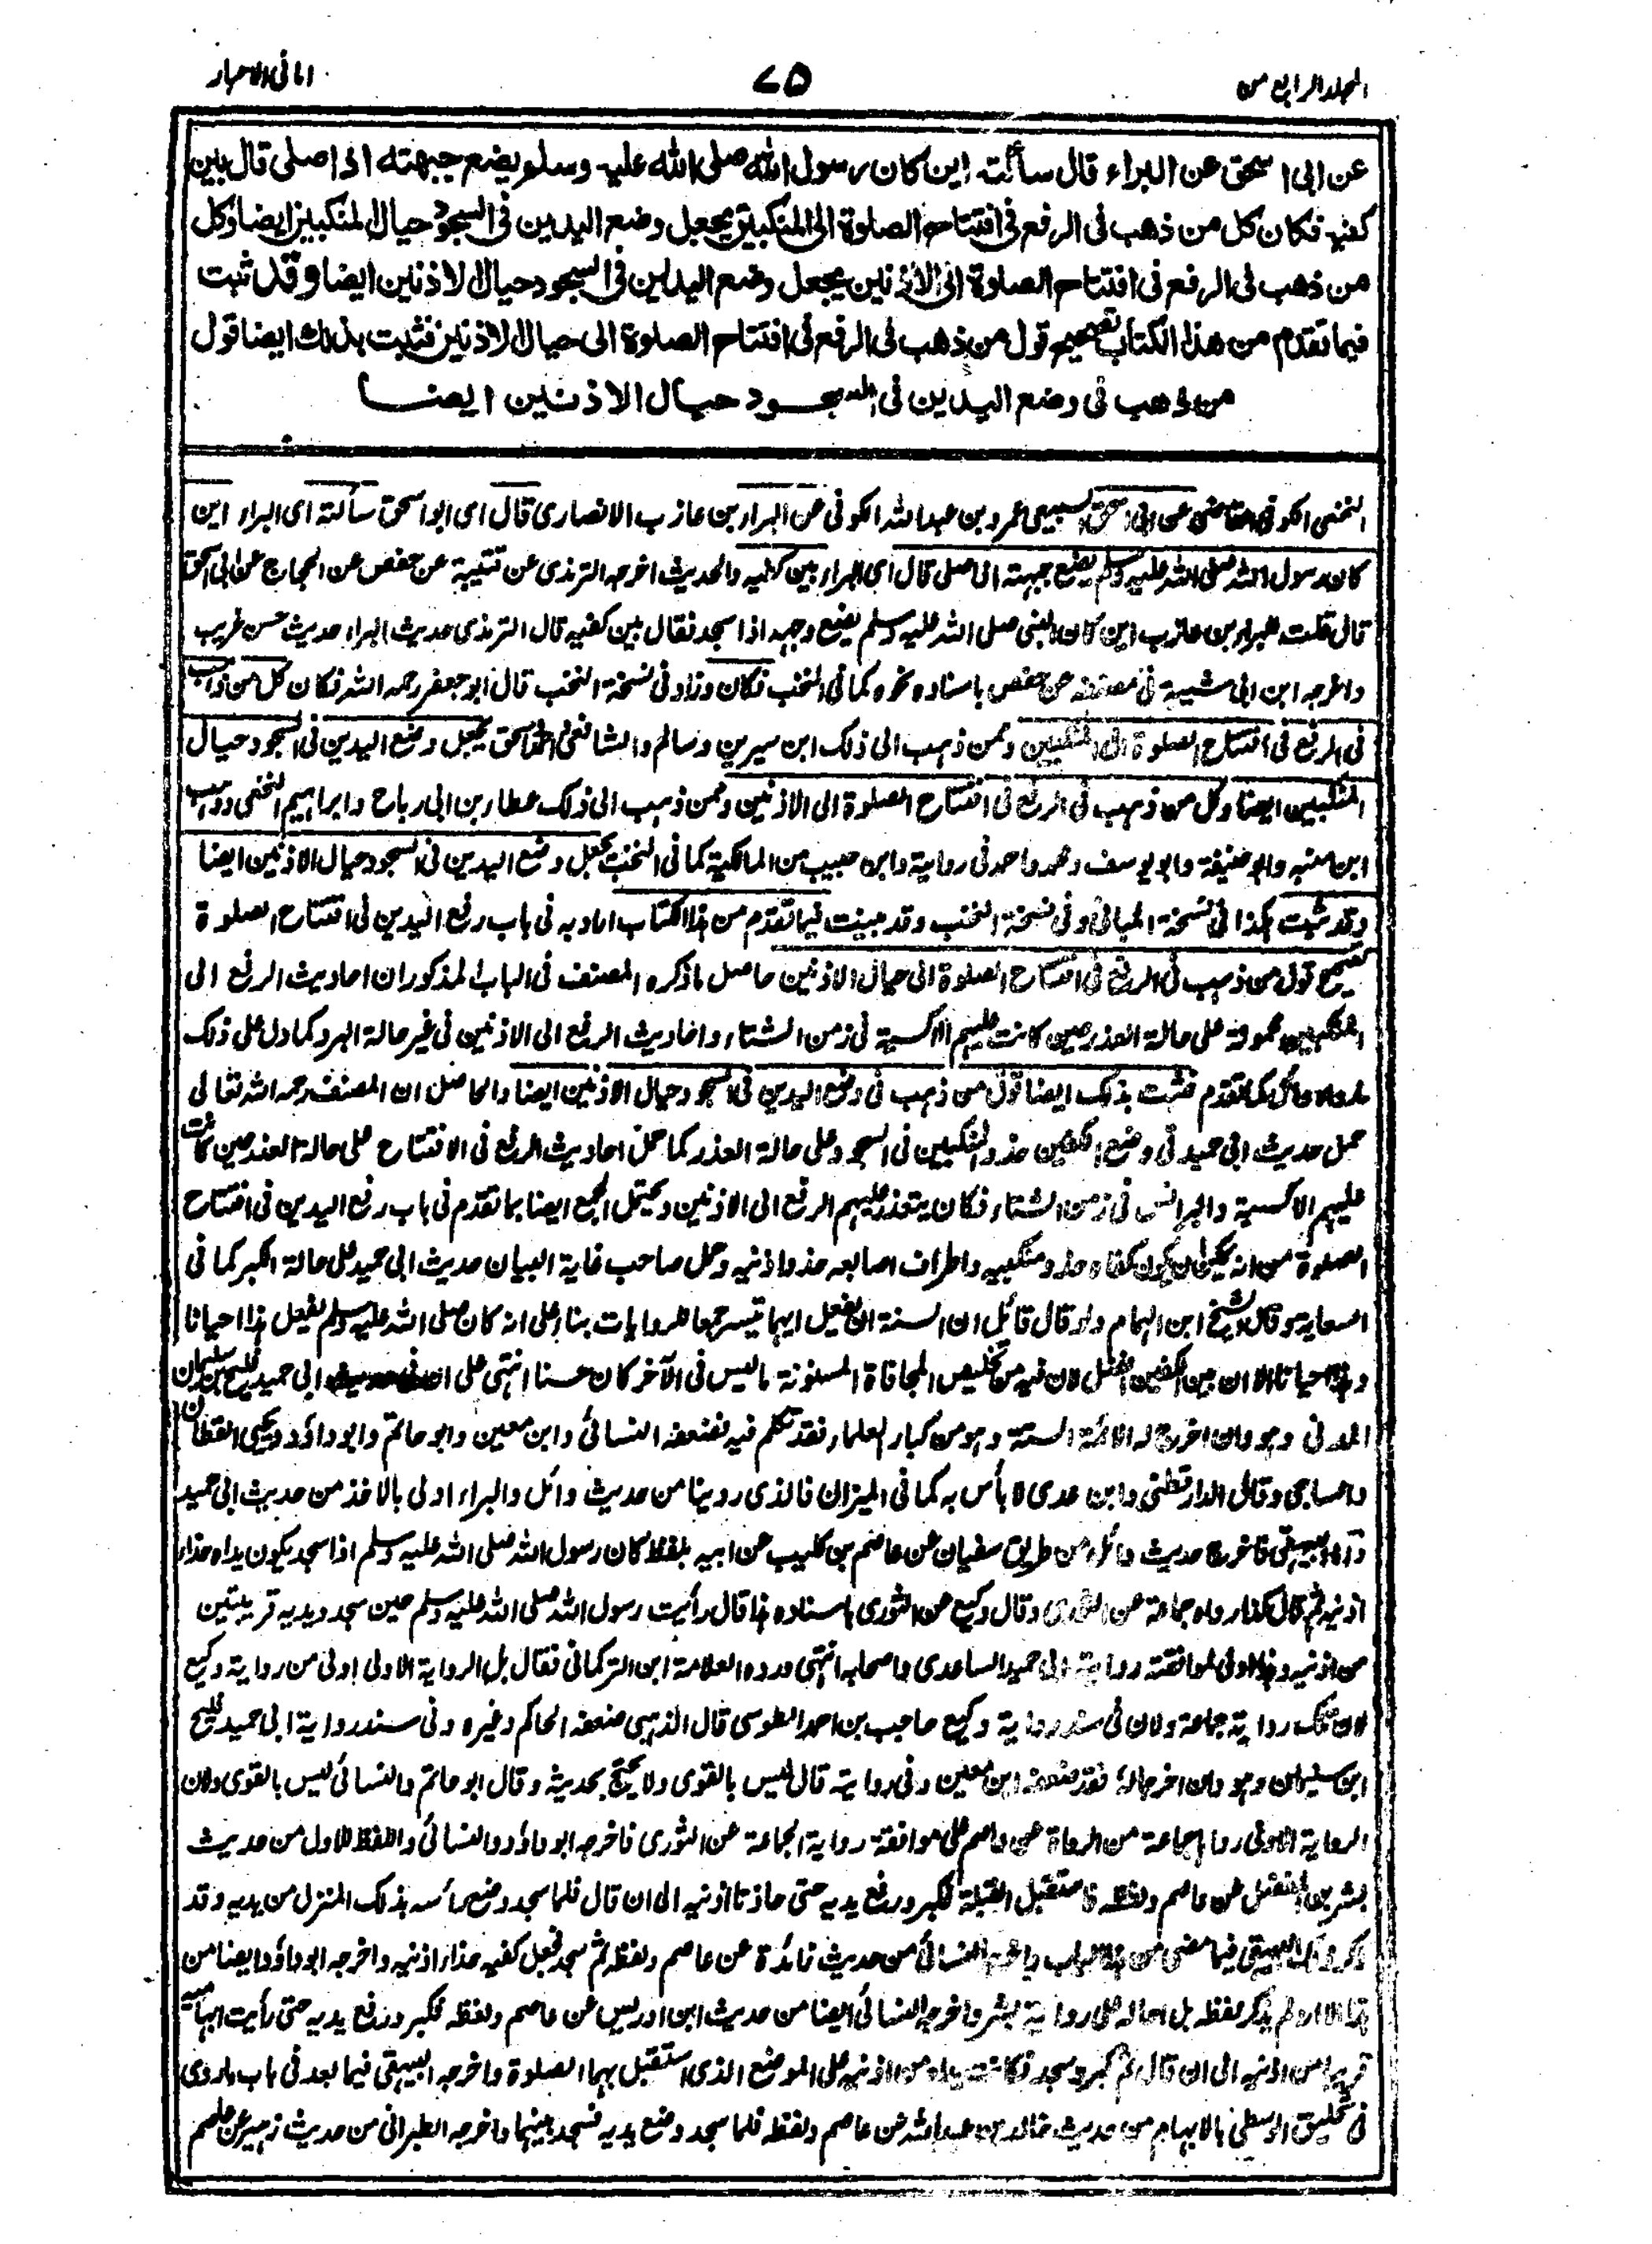 المجلد الرابع من
٧٥
امانی الاحبار
عن ابی اسحق عن البراء قال سألته این کان رسول الله صلی الله علیه وسلم یضع جبهته اذا صلی قال بین
کفیه فکان کل من ذهب فی الرفع فی افتتاح الصلوة الی المنکبین یجعل وضع الیدین فی السجود حیال المنکبین ایضا وکل
من ذهب فی الرفع فی افتتاح الصلوة الی الاذنین یجعل وضع الیدین فی السجود حیال الاذنین ایضا وقد ثبت
فیما تقدم من هذا الکتاب تصحیح قول من ذهب فی الرفع فی افتتاح الصلوة الی حیال الاذنین فثبت بذلك ایضا قول
من ذهب فی وضع الیدین فی السجود حیال الاذنین ایضا
النخعی الکوفی القاضی عن ابی اسحق السبیعی عمرو بن عبد الله الکوفی عن البراء بن عازب الانصاری قال ای ابو اسحق سألته ای البراء این
کان رسول الله صلی الله علیه وسلم یضع جبهته اذا صلی قال ای البراء بین کفیه والحدیث اخرجه الترمذی عن قتیبة عن حفص عن الحجاج عن ابی اسحق
قال قلت للبراء بن عازب این کان النبی صلی الله علیه وسلم یضع وجهه اذا سجد فقال بین کفیه قال الترمذی حدیث البراء حدیث حسن غریب
واخرجه ابن ابی شیبة فی مصنفه عن حفص باسناده نحوه کما فی النخب فکان وزاد فی نسخة النخب قال ابو جعفر رحمه الله فکان کل من ذهب
فی الرفع فی افتتاح الصلوة الی المنکبین وممن ذهب الی ذلک ابن سیرین وسالم والشافعی واسحق یجعل وضع الیدین فی السجود حیال
المنکبین ایضا وکل من ذهب فی الرفع فی افتتاح الصلوة الی الاذنین وممن ذهب الی ذلک عطاء بن ابی رباح وابراهیم النخعی ووهب
ابن منبه وابو حنیفة وابو یوسف ومحمد واحمد فی روایة وابن حبیب من المالکیة کما فی النخب یجعل وضع الیدین فی السجود حیال الاذنین ایضا
وقد ثبت هکذا فی نسخة المبانی وفی نسخة النخب وقد بینت فیما تقدم من هذا الکتاب اراد به فی باب رفع الیدین فی افتتاح الصلوة
تصحیح قول من ذهب فی الرفع فی افتتاح الصلوة الی حیال الاذنین حاصل ما ذکره المصنف فی الباب المذکور ان احادیث الرفع الی
المنکبین محمولة علی حالة العذر حین کانت علیهم الاکسیة فی زمن الشتاء واحادیث الرفع الی الاذنین فی غیر حالة البرد کما دل علی ذلک
ما رواه وائل کما تقدم فثبت بذلک ایضا قول من ذهب فی وضع الیدین فی السجود حیال الاذنین ایضا والحاصل ان المصنف رحمه الله تعالی
حمل حدیث ابی حمید فی وضع الکفین حذو المنکبین فی السجود علی حالة العذر کما حمل احادیث الرفع فی الافتتاح علی حالة العذر حین کانت
علیهم الاکسیة والبرانس فی زمن الشتاء فکان یتعذر علیهم الرفع الی الاذنین ویحتمل الجمع ایضا بما تقدم فی باب رفع الیدین فی افتتاح
الصلوة من انه یمکن ان یکون کفاه حذو منکبیه واطراف اصابعه حذو اذنیه وحمل صاحب غایة البیان حدیث ابی حمید علی حالة الکبر کما فی
السعایة وقال الشیخ ابن الهمام ولو قال قائل ان السنة ان یفعل ایهما تیسر جمعا للروایات بناء علی انه کان صلی الله علیه وسلم یفعل هذا احیانا
وهذا احیانا الا ان بین الکفین افضل لان فیه من تخلیص المجافاة المسنونة ما لیس فی الآخر کان حسنا انتهی علی ان فی حدیث ابی حمید فلیح بن سلیمان
المدنی وهو وان اخرج له الائمة الستة وهو من کبار العلماء فقد تکلم فیه فضعفه النسائی وابن معین وابو حاتم وابو داؤد ویحیی القطان
والساجی وقال الدارقطنی وابن عدی لا بأس به کما فی المیزان فالذی روینا من حدیث وائل والبراء اولی بالاخذ من حدیث ابی حمید
واما البیهقی فاخرج حدیث وائل من طریق سفیان عن عاصم بن کلیب عن ابیه بلفظ کان رسول الله صلی الله علیه وسلم اذا سجد یکون یداه حذاء
اذنیه ثم قال کذا رواه جماعة عن الثوری وقال وکیع عن الثوری باسناده هذا قال رأیت رسول الله صلی الله علیه وسلم حین سجد ویدیه قریبتین
من اذنیه وهذا اولی لموافقته روایة ابی حمید الساعدی واصحابه انتهی ورده العلامة ابن الترکمانی فقال بل الروایة الاولی اولی من روایة وکیع
لان تلک روایة جماعة ولان فی سند روایة وکیع حاجب بن احمد الطوسی قال الذهبی ضعفه الحاکم وغیره وفی سند روایة ابی حمید فلیح
ابن سلیمان وهو وان اخرجا له فقد ضعفه ابن معین وفی روایة قال لیس بالقوی ولا یحتج بحدیثه وقال ابو حاتم والنسائی لیس بالقوی ولان
الروایة الاولی رواها جماعة من الرواة عن عاصم علی موافقة روایة الجماعة عن الثوری فاخرجه ابو داؤد والنسائی واللفظ للاول من حدیث
بشر بن المفضل عن عاصم ولفظه فاستقبل القبلة فکبر ورفع یدیه حتی حاذتا اذنیه الی ان قال فلما سجد وضع رأسه بذلک المنزل من یدیه وقد
ذکر ذلک البیهقی فیما مضی من هذا الباب واخرجه النسائی من حدیث زائدة عن عاصم ولفظه ثم سجد فجعل کفیه حذاء اذنیه واخرجه ابو داؤد ایضا من
هذا الا انه لم یذکر لفظه بل احاله علی روایة بشر واخرجه النسائی ایضا من حدیث ابن ادریس عن عاصم ولفظه فکبر ورفع یدیه حتی رأیت ابهامیه
قریبا من اذنیه الی ان قال ثم کبر وسجد فکانت یداه من اذنیه علی الموضع الذی استقبل بهما الصلوة واخرجه البیهقی فیما بعد فی باب ما روی
فی تحلیق الوسطی بالابهام من حدیث خالد بن عبد الله عن عاصم ولفظه فلما سجد وضع یدیه فسجد بینهما واخرجه الطبرانی من حدیث زهیر عن عاصم